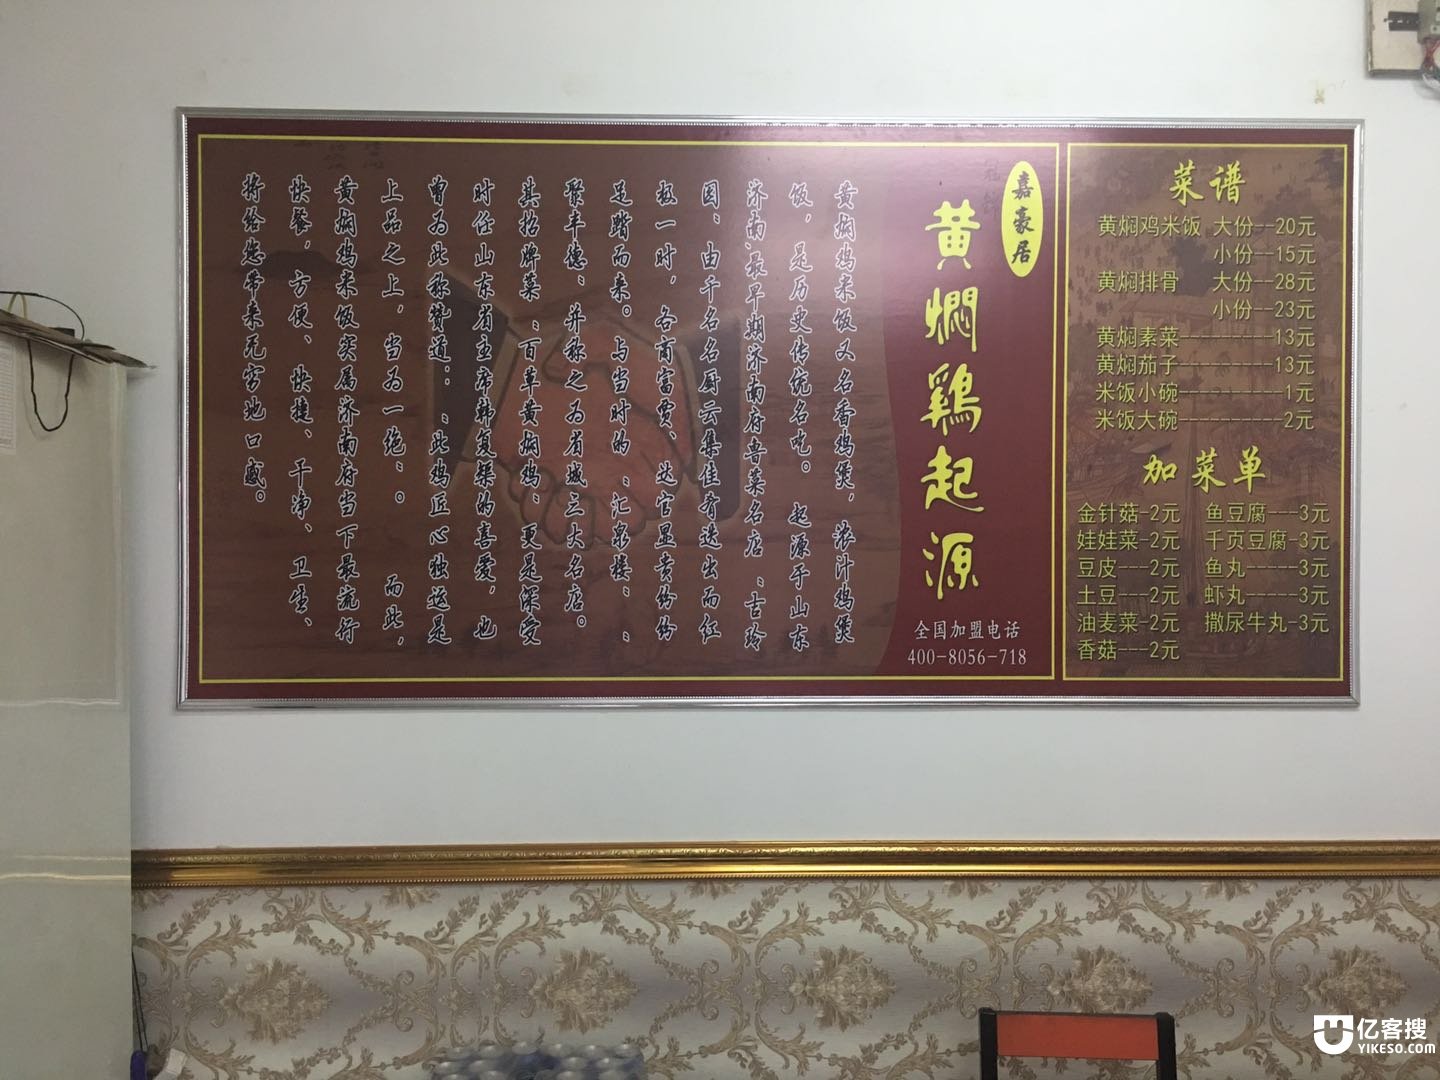 嘉豪居
黄焖鷄起源
全国加盟电话
400-8056-718
黄焖鸡米饭又名香鸡煲，浓汁鸡煲
饭，是历史传统名吃。起源于山东
济南，最早期济南府鲁菜名店“吉玲
园、由千名名厨云集佳肴迭出而红
极一时，各商富贾、达官显贵纷纷
足踏而来。与当时的“汇泉楼”“
聚丰德”并称之为省城三大名店。
其招牌菜“百草黄焖鸡”更是深受
时任山东省主席韩复榘的喜爱，也
曾为此称赞道：“此鸡匠心独运是
上品之上，当为一绝”。而此，
黄焖鸡米饭实属济南府当下最流行
快餐，方便、快捷、干净、卫生、
将给您带来无穷地口感。
菜谱
黄焖鸡米饭 大份--20元
小份--15元
黄焖排骨 大份--28元
小份--23元
黄焖素菜---------13元
黄焖茄子---------13元
米饭小碗----------1元
米饭大碗----------2元
加菜单
金针菇-2元 鱼豆腐---3元
娃娃菜-2元 千页豆腐-3元
豆皮---2元 鱼丸-----3元
土豆---2元 虾丸-----3元
油麦菜-2元 撒尿牛丸-3元
香菇---2元
亿客搜
YIKESO.COM